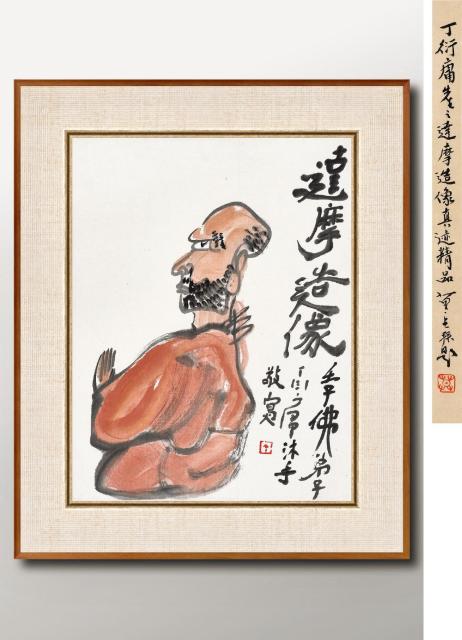 丁衍庸先生之達摩造像真迹精品
達摩造像
奉佛弟子
丁衍庸沐手
敬寫